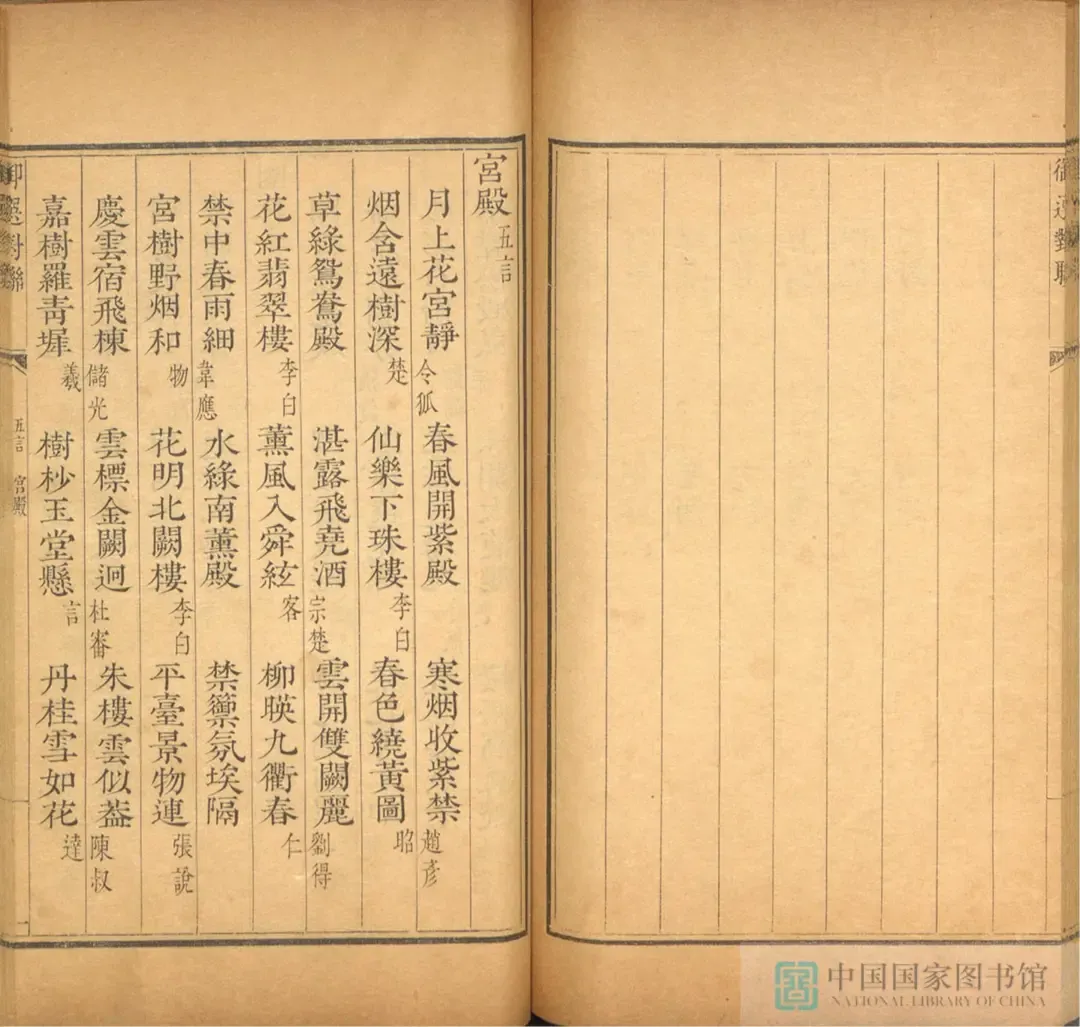 御選對聯
宮殿 五言
月上花宮靜 令狐 春風開紫殿 寒烟收紫禁 趙彥
烟含遠樹深 楚 仙樂下珠樓 李白 春色繞黃圖 昭
草綠鴛鴦殿 湛露飛堯酒 宗楚 雲開雙闕麗 劉得
花紅翡翠樓 李白 薰風入舜絃 客 柳暎九衢春 仁
禁中春雨細 韋應 水綠南薰殿 禁籞氛埃隔
宮樹野烟和 物 花明北闕樓 李白 平臺景物連 張說
慶雲宿飛棟 儲光 雲標金闕逈 杜審 朱樓雲似葢 陳叔
嘉樹羅青墀 羲 樹杪玉堂懸 言 丹桂雪如花 達
御選對聯 五言 宮殿 一
中国国家图书馆
NATIONAL LIBRARY OF CHINA